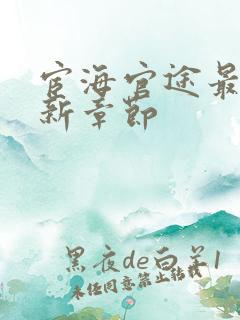 宦海官途最
新章节
黑夜de白羊1
未经同意禁止转载